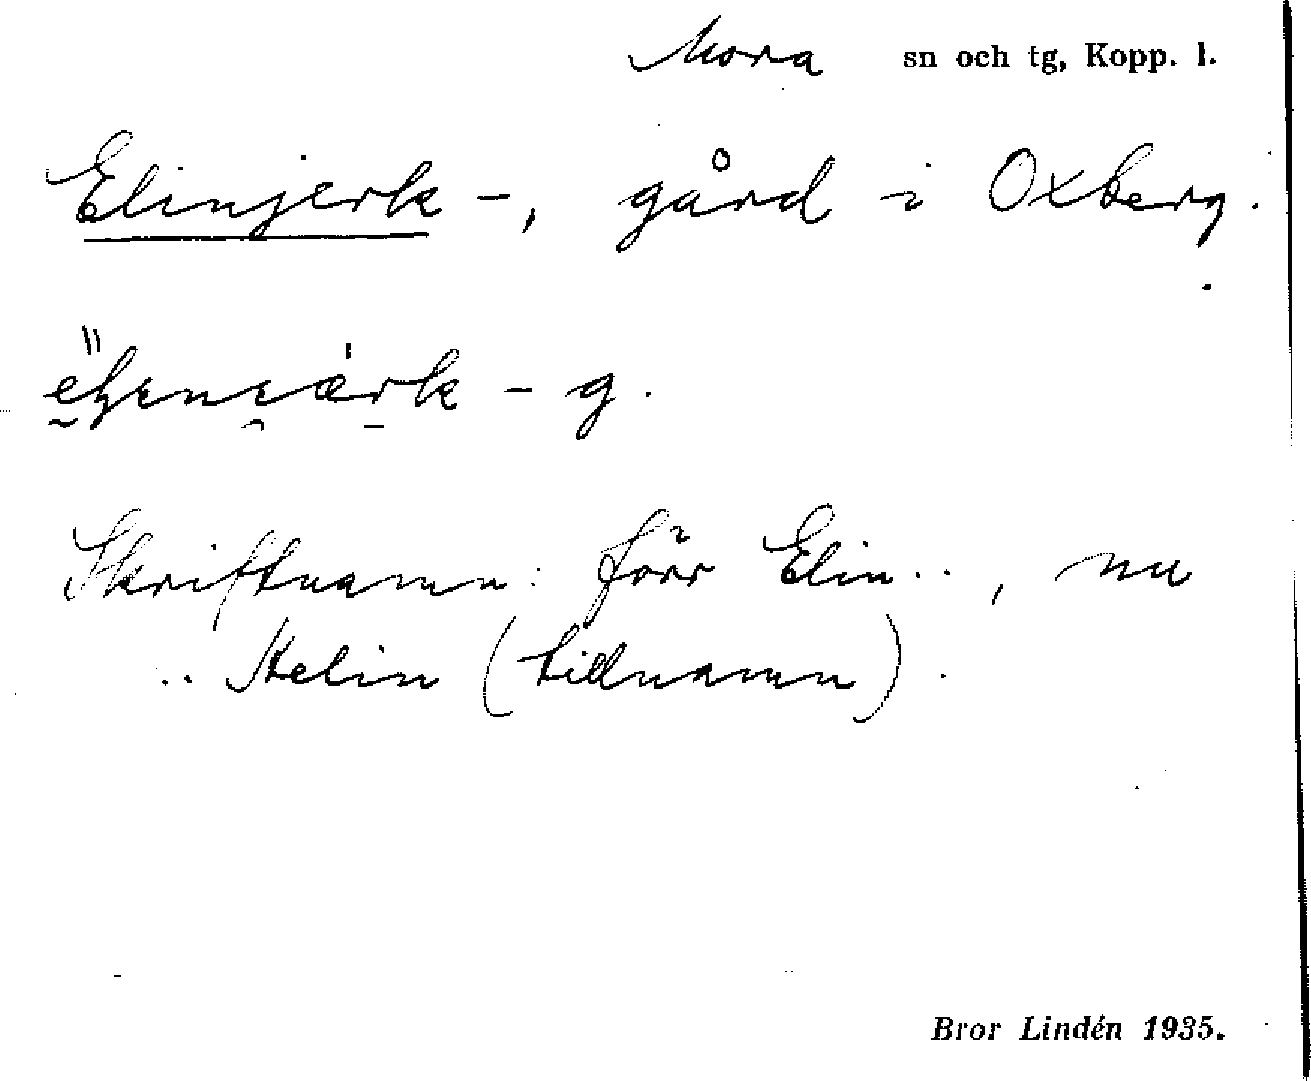 Mora sn och tg, Kopp. l.
Elinjerk-, gård i Oxberg.
- g.
Skriftnamn: förr Elin.., nu
.. Helin (tillnamn).
Bror Lindén 1935.